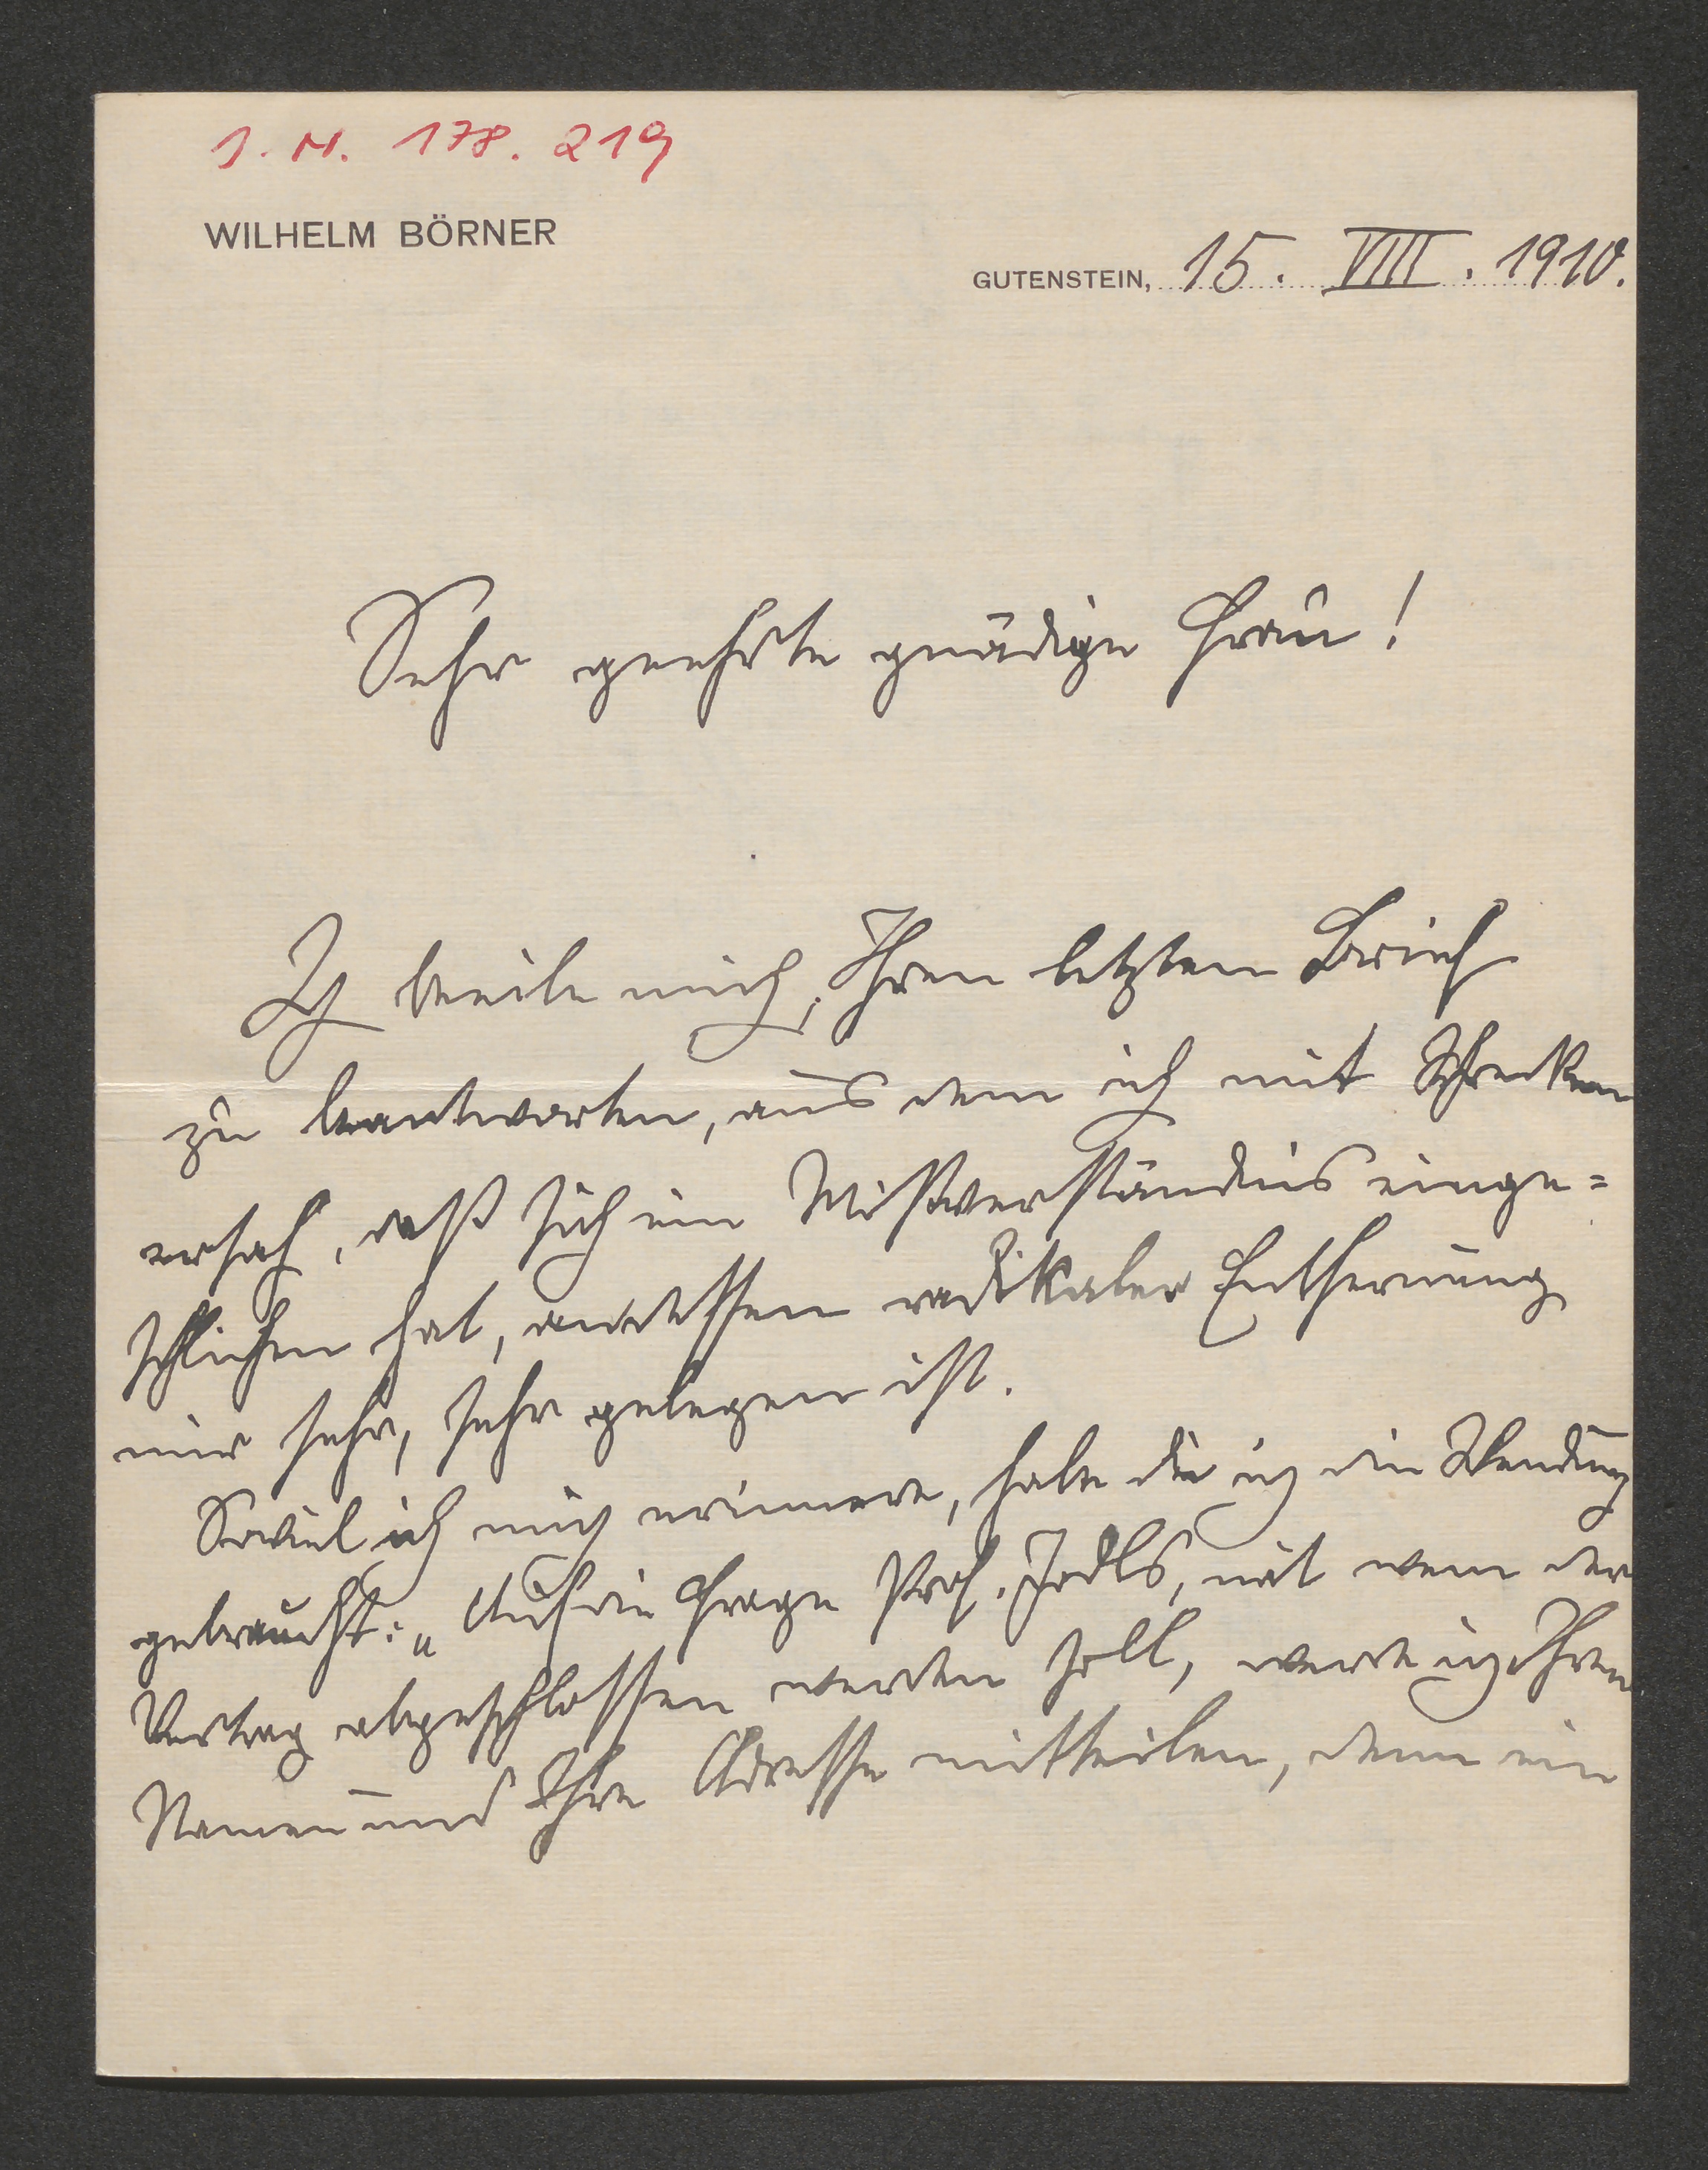 I. N. 178.219
WILHELM BÖRNER
GUTENSTEIN, 15. VIII. 1910.
Sehr geehrte gnädige Frau!
Ich beeile mich, Ihren letzten Brief
zu beantworten, aus dem ich mit Schrecken
ersah, daß sich ein Mißverständnis einge=
schlichen hat, an dessen radikaler Entfernung
mir sehr, sehr gelegen ist.
Soviel ich mich erinnere, habe ich die Wendung
gebraucht: „Auf die Frage Prof. Jodls, mit wem der
Vertrag abgeschlossen werden soll, werde ich Ihren
Namen und Ihre Adresse mitteilen, denn ein